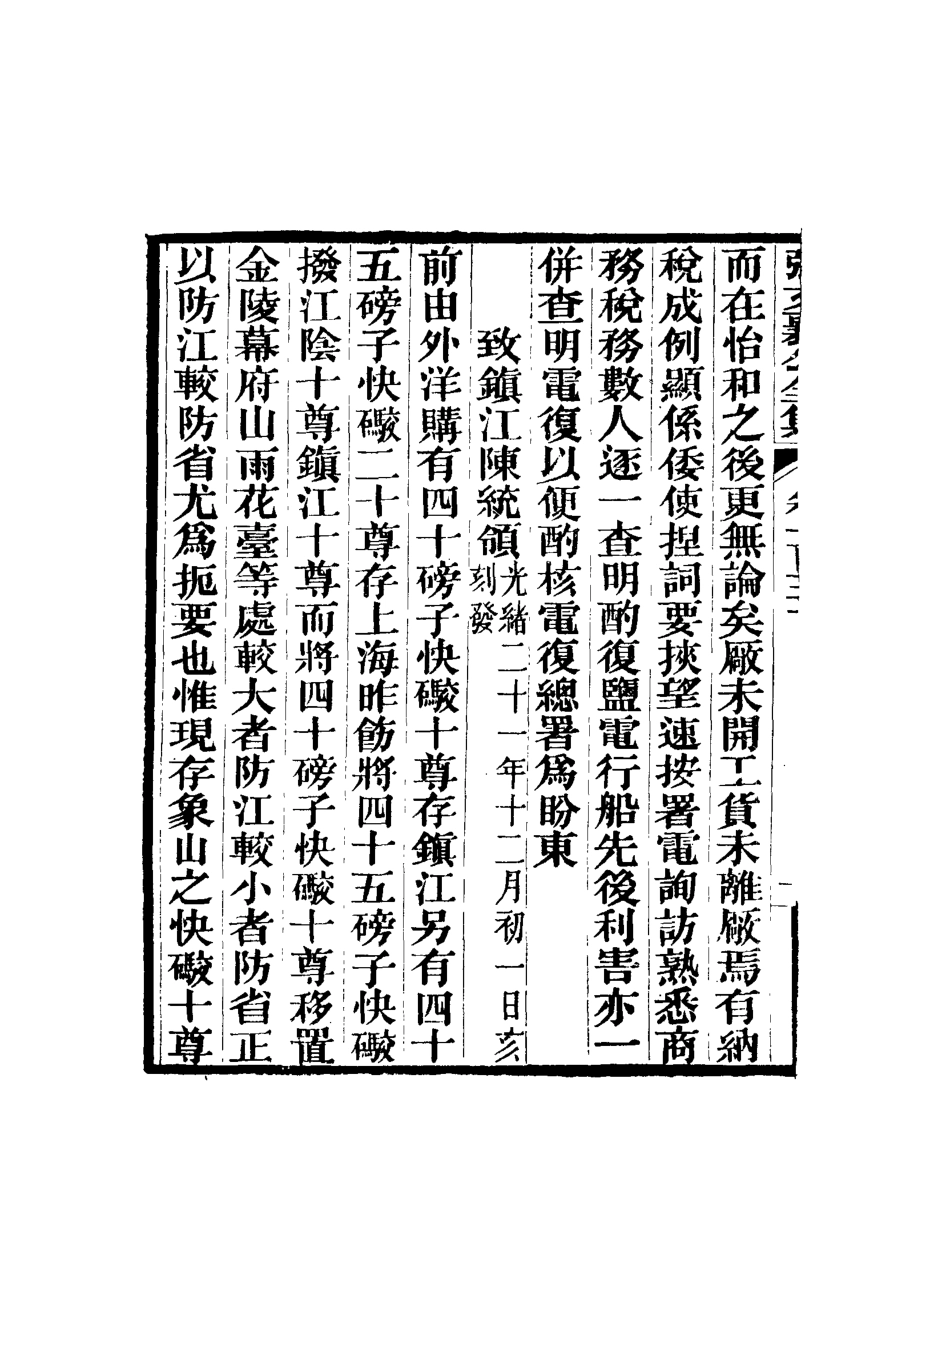 而在怡和之後更無論矣厰未開工貨未離厰焉有納
稅成例顯係倭使揑詞要挾望速按署電詢訪熟悉商
務稅務數人逐一查明酌復鹽電行船先後利害亦一
併查明電復以便酌核電復總署爲盼東
致鎭江陳統領光緒二十一年十二月初一日亥刻發
前由外洋購有四十磅子快礮十尊存鎭江另有四十
五磅子快礮二十尊存上海昨飭將四十五磅子快礮
撥江陰十尊鎭江十尊而將四十磅子快礮十尊移置
金陵幕府山雨花臺等處較大者防江較小者防省正
以防江較防省尤爲扼要也惟現存象山之快礮十尊